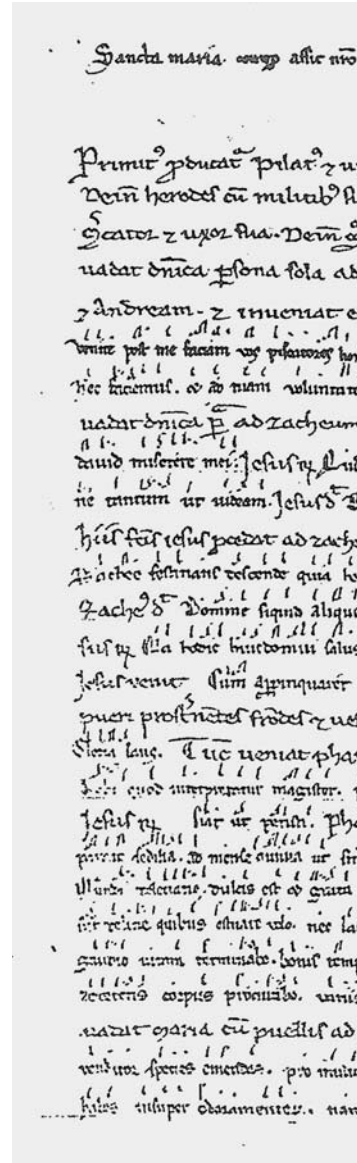 Sancta maria. assit nr̄o
Primitꝰ ꝓducat᷑ pilatꝰ ⁊ u
Dein̄ herodes cū militibꝰ su
cator ⁊ uxor sua. Dein̄
uadat dn̄ica ꝑsona sola ad
⁊ Andream. ⁊ inueniat e
venite post me faciam vos piscatores hom
hec faciemus. ad tuam voluntate
uadat dn̄ica ꝑ ad zacheum
dauid miserere mei. Jesus ꝶ
ne tantum ut uideam. Jesus d᷑
hiis fc̄is iesus ꝓcedat ad zache
zachee festinans descende quia ho
Zacheꝰ d᷑ Domine siquid aliquē
sus ꝶ Quia hodie huicdomui salus
Jesus venit Cum appinquaret
pueri prostn̄entes frōdes ⁊ ues
Gloria laus. Tūc ueniat phar
Rabi quod interpretatur magister.
Jesus ꝶ fiat ut petisti. Pha
sedilia. ad mense ut
Mundi delectatio. dulcis est et grata
sūt delicie quibus estuare uolo. nec la
gaudio uitam terminabo. bonis temp
corpus procurabo. variis
uadat Maria cū puellis ad
venditor species emendas. pro multa
insuper odoramentis. nam